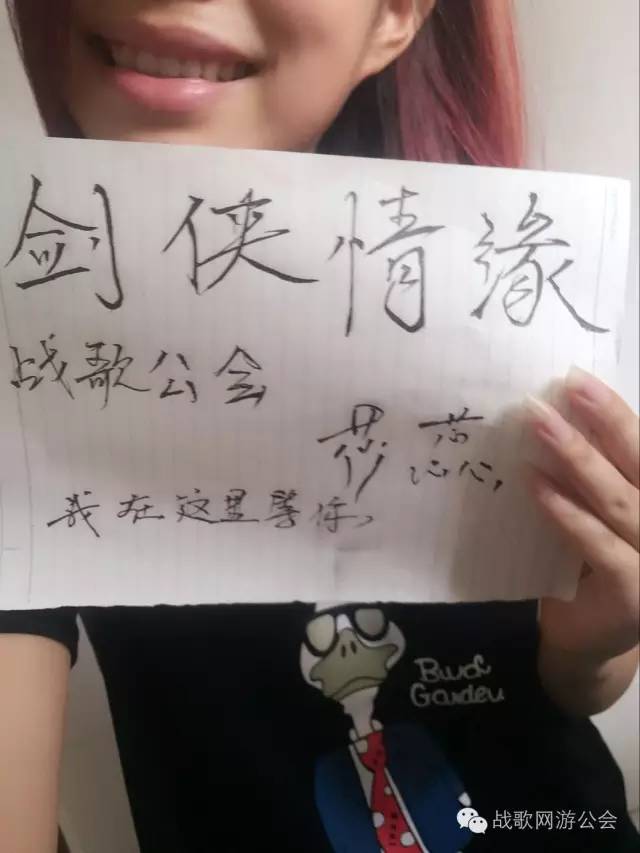 剑侠情缘
战歌公会
莎蕊
我在这里等你
Bwdc
Garden
战歌网游公会